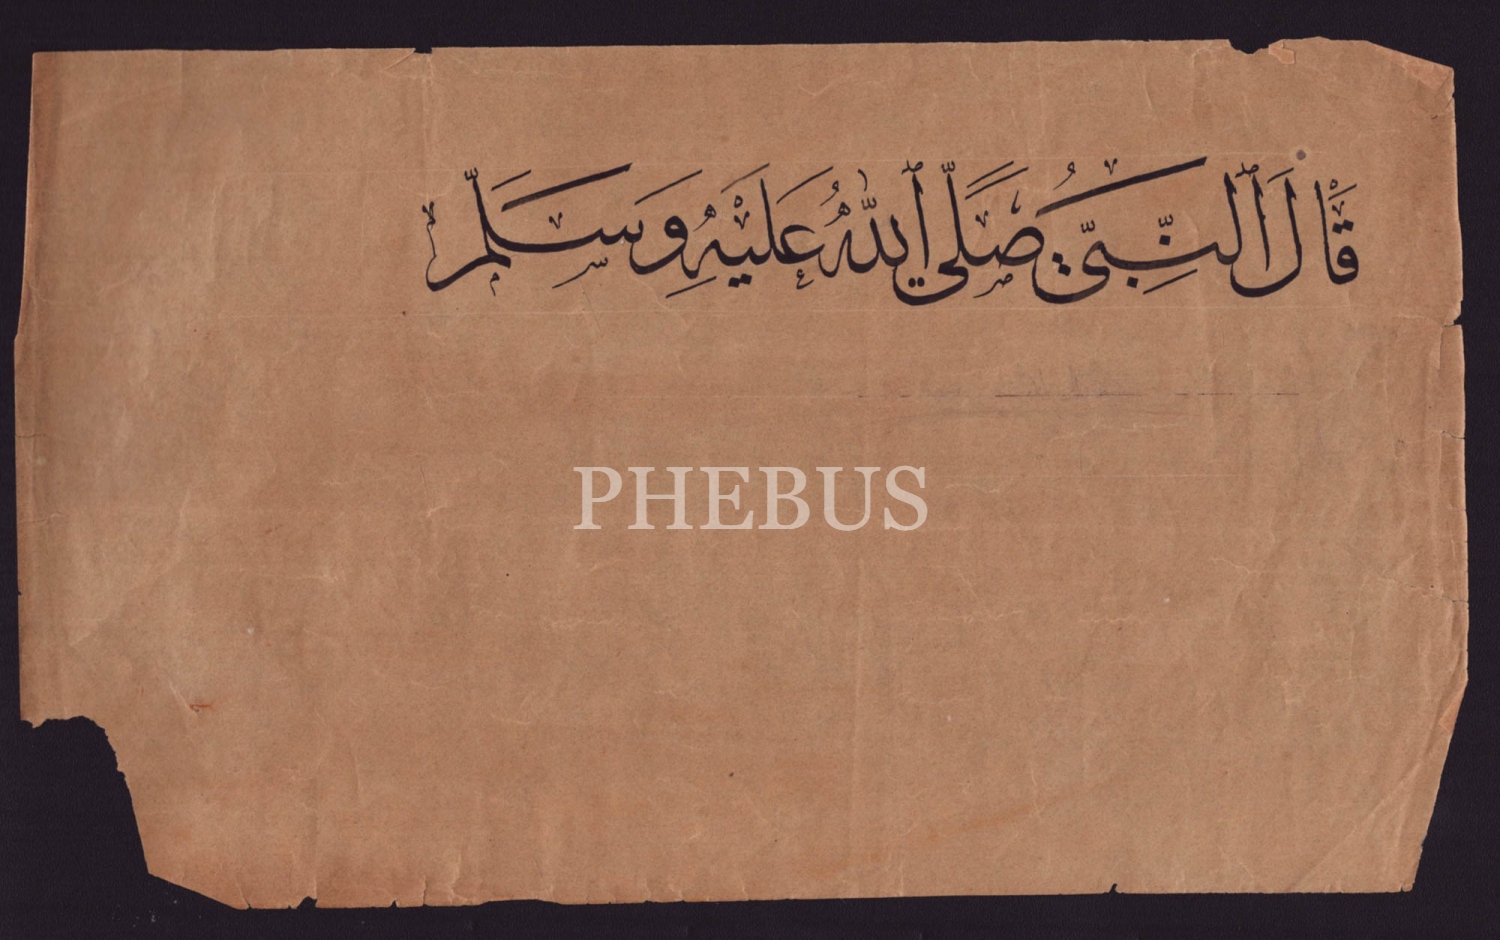 قَالَ ٱلنَّبِيُّ صَلَّى ٱللّٰهُ عَلَيْهِ وَسَلَّمَ
PHEBUS